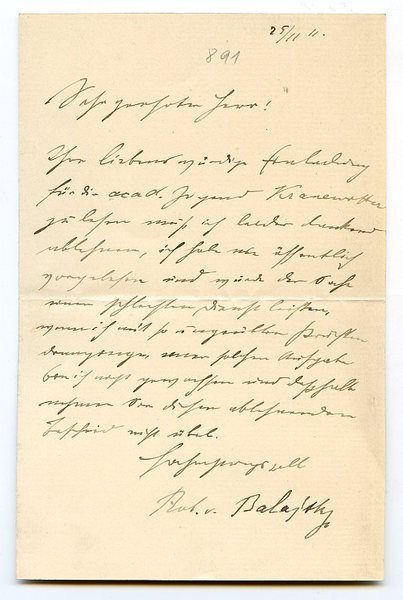 25/11 11.
891
Sehr geehrter Herr!
Ihre liebenswürdige Einladung
für die acad. Jugend Kranewitter
zu lesen muß ich leider dankend
ablehnen, ich habe nie öffentlich
vorgelesen und würde der Sache
einen schlechten Dienst leisten,
wenn ich mit so ungeübten
einer solchen Aufgabe
bin ich nicht gewachsen und deßhalb
nehmen Sie diesen ablehnenden
Bescheid nicht übel.
Hochachtungsvoll
Rob. v.